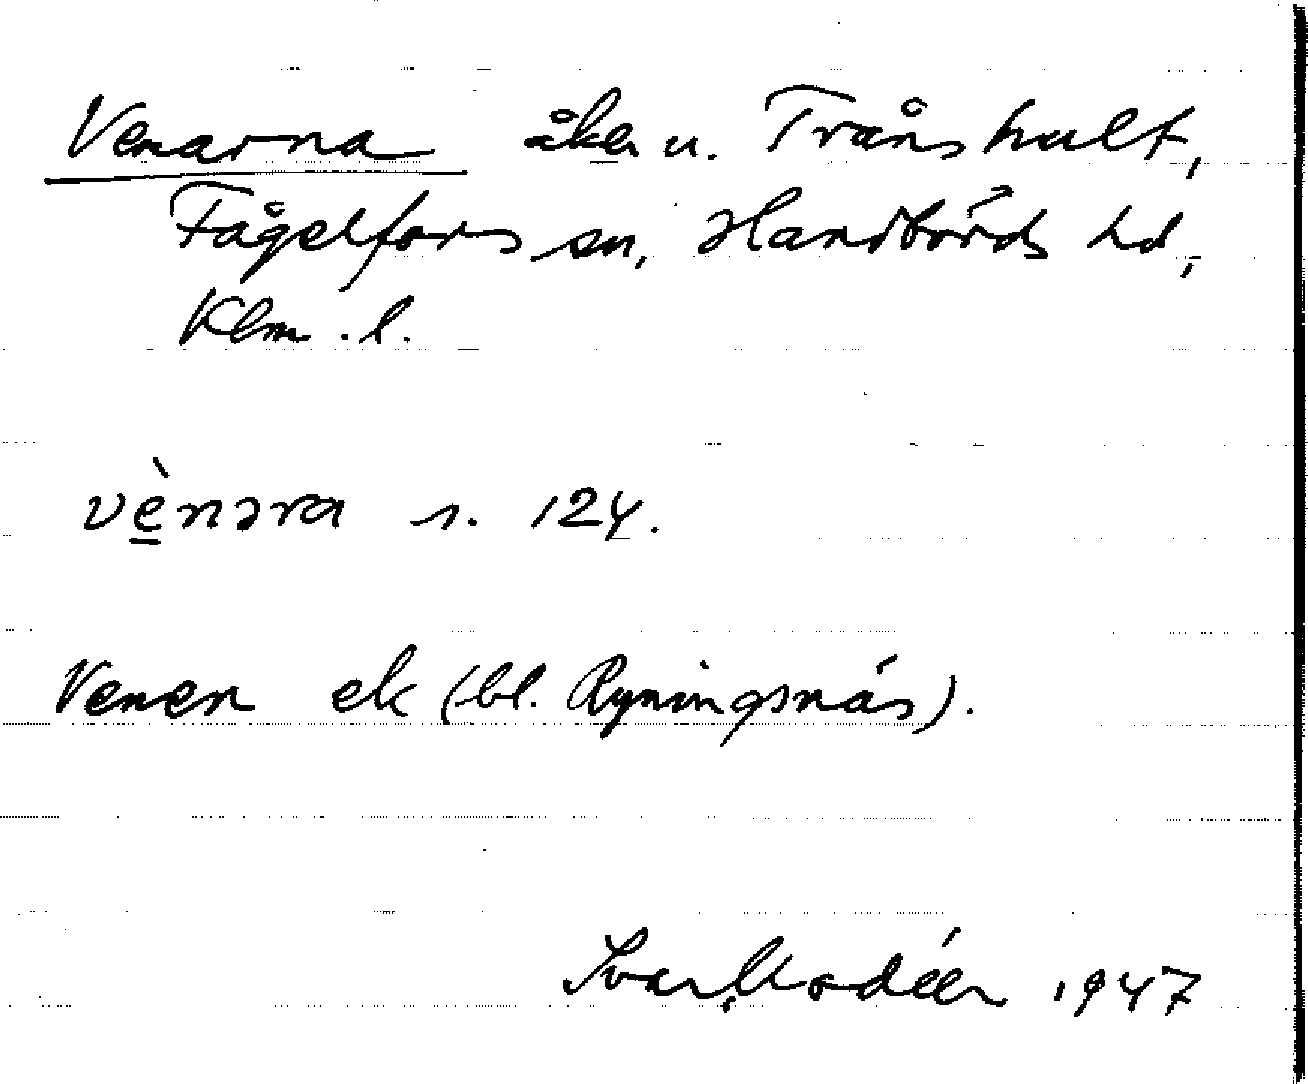 Venarna åker u. Trånshult,
Fågelfors sn, Handbörds hd,
Klm. l.
vè̱nəra s. 124.
Venen ek (bl. Ryningsnäs).
Ivar Modéer 1947